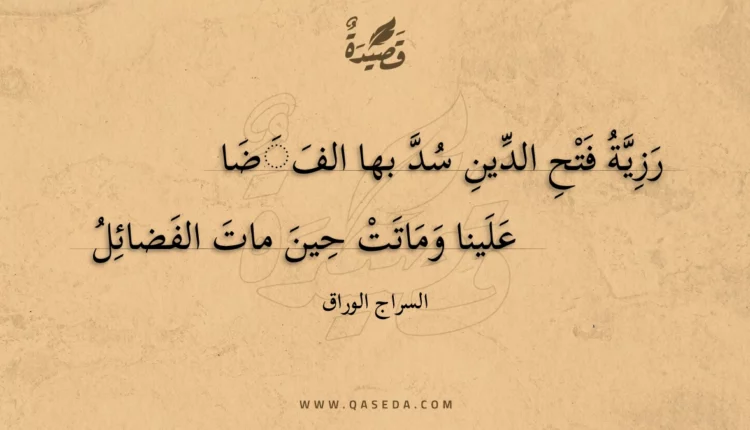 قَصِيْدَةٌ
رَزِيَّةُ فَتْحِ الدِّينِ سُدَّ بها الفَ◌َضَا
عَلَينا وَمَاتَتْ حِينَ ماتَ الفَضائِلُ
السراج الوراق
WWW.QASEDA.COM